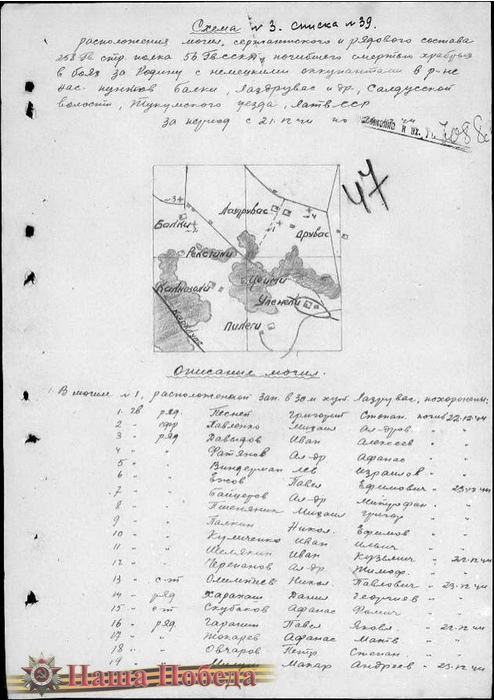 Схема № 3. списка № 39.
расположения могил, сержантского и рядового состава
258 Гв стр. полка 56 Гв.ССКД, погибшего смертью храбрых
в боях за Родину с немецкими оккупантами в р-не
нас. пунктов Балки, Лаздрувас и др., Салдусской
волости, Тукумского уезда, Латв ССР
за период с 21.12.44 по 44
47
Балки
Лаздрувас
Друвас
Рекстини
Калнозоли
Цойсти
Упенеки
Пилеги
Описание могил.
1. В могиле № 1, расположенной зап. в 30 м хут. Лаздрувас, похоронены:
1. гв ряд. Григорий Степан. погиб 22.12.44
2 " ефр Павленко Михаил Ал-дров. " "
3 " ряд Давыдов Иван Алексеев " "
4 " " Фатянов Ал-др Афанас " "
5 " " Виндерман Лев Израилов " "
6 " " Ежов Павел Ефимович " 23.12.44
7 " " Ал-др Митрофан " "
8 " " Пшеничник Михаил Григор " "
9 " " Палкин Никол. Ефимов
10 " " Кулиненко Иван Ильич
11 " " Шемякин Иван Кузьмич " 22.12.44
12 " " Черепанов Ал-др Тимоф. "
13 " с-т Олимпиев Никол. Павлович " 23.12.44
14 " ряд Даниил Георгиев " "
15 " с-т Скубаков Афанас Фомич
16 " ряд. Гаранин Павел Яковл. " 22.12.44
17 " " Жокарев Афанас Матв " "
18 " " Овчаров Петр Степан. "
19 " Макар Андреев " 23.12.44
Наша Победа